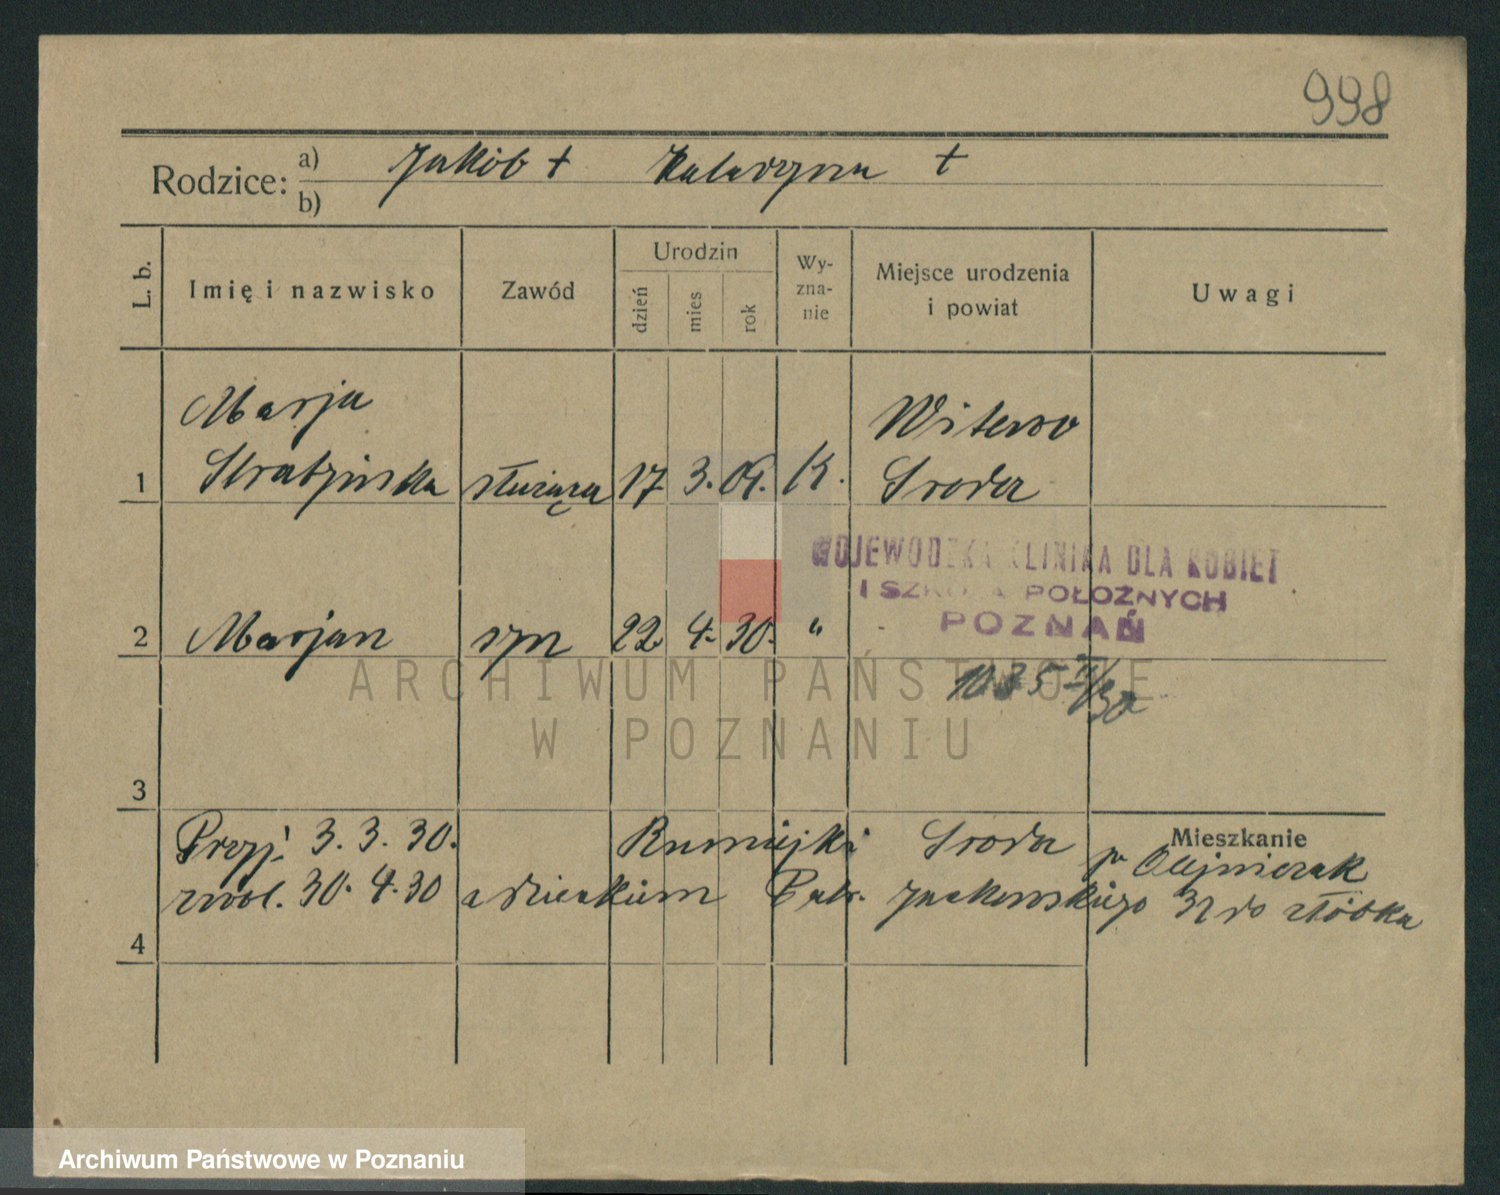 998
Rodzice: a) Jakób + Katarzyna +
b)
L. b.
Imię i nazwisko
Zawód
Urodzin
dzień
mies
rok
Wy-
zna-
nie
Miejsce urodzenia
i powiat
Uwagi
Marja
Witowo
1 służąca 17 3. 01. K. Środa
WOJEWÓDZKA KLINIKA DLA KOBIET
I SZKOŁA POŁOŻNYCH
POZNAŃ
2 Marjan syn 22. 4. 30. "
1035 IV/30
ARCHIWUM PAŃSTWOWE
W POZNANIU
3
Przyj. 3. 3. 30. Środa
Mieszkanie
p. Olejniczak
zwol. 30. 4. 30 z dzieckiem 32 do żłóbka
4
Archiwum Państwowe w Poznaniu